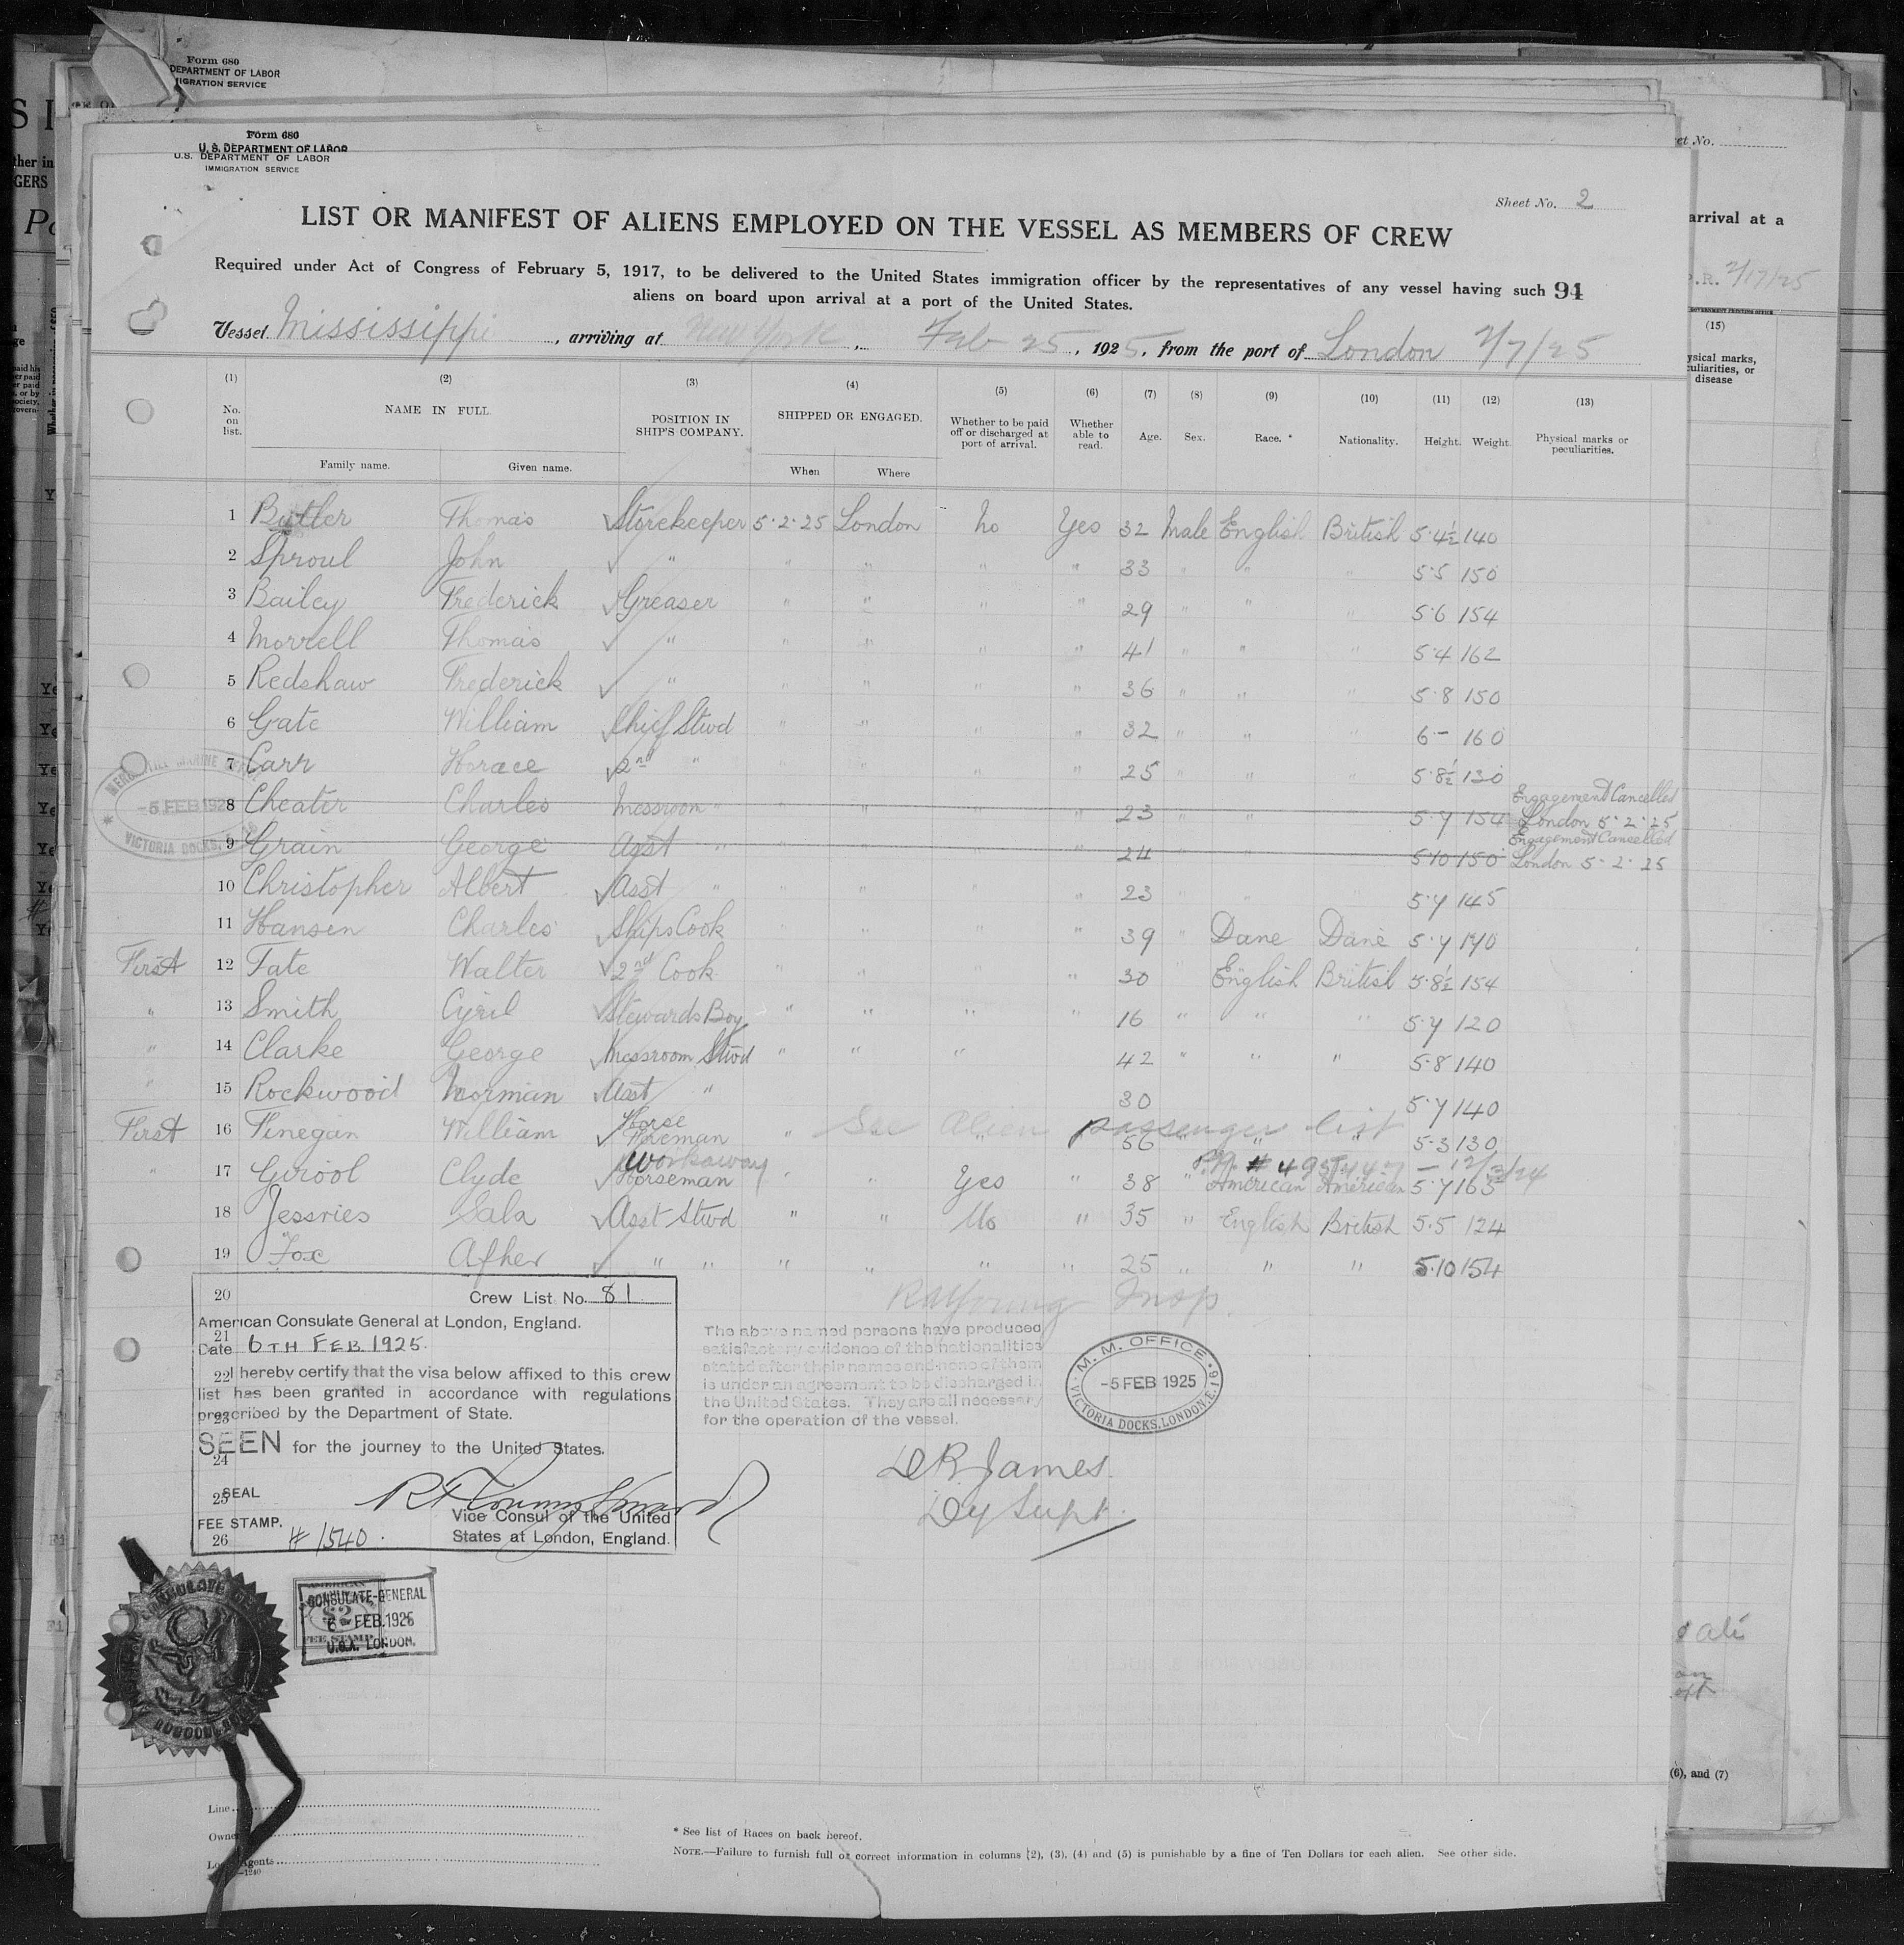 Form 680
DEPARTMENT OF LABOR
IMMIGRATION SERVICE
Form 680
U. S. DEPARTMENT OF LABOR
U.S. DEPARTMENT OF LABOR
IMMIGRATION SERVICE
Sheet No. 2
LIST OR MANIFEST OF ALIENS EMPLOYED ON THE VESSEL AS MEMBERS OF CREW
Required under Act of Congress of February 5, 1917, to be delivered to the United States immigration officer by the representatives of any vessel having such 94
aliens on board upon arrival at a port of the United States.
Vessel Mississippi, arriving at New York, Feb 25, 1925, from the port of London 2/7/25
(1) (2) (3) (4) (5) (6) (7) (8) (9) (10) (11) (12) (13)
No. on list. NAME IN FULL. POSITION IN SHIP'S COMPANY. SHIPPED OR ENGAGED. Whether to be paid off or discharged at port of arrival. Whether able to read. Age. Sex. Race. * Nationality. Height. Weight. Physical marks or peculiarities.
Family name. Given name. When Where
1 Butler Thomas Storekeeper 5·2·25 London No Yes 32 Male English British 5·4½ 140
2 Sproul John " " " " " 33 " " " 5·5 150
3 Bailey Frederick Greaser " " " " 29 " " " 5·6 154
4 Morrell Thomas " " " " " 41 " " " 5·4 162
5 Redshaw Frederick " " " " " 36 " " " 5·8 150
6 Gate William Chief Stwd " " " " 32 " " " 6- 160
7 Carr Horace 2nd " " " " " 25 " " " 5·8½ 130
8 Cheater Charles Messroom " " " " " 23 " " " 5·7 154 Engagement Cancelled London 5·2·25
9 Grain George Asst " " " " " 24 " " " 5·10 150 Engagement Cancelled London 5·2·25
10 Christopher Albert Asst " " " " " 23 " " " 5·7 145
11 Hansen Charles Ships Cook " " " " 39 " Dane Dane 5·7 170
First 12 Tate Walter 2nd Cook " " " " 30 " English British 5·8½ 154
" 13 Smith Cyril Stewards Boy " " " " 16 " " " 5·7 120
" 14 Clarke George Messroom Stwd " " " " 42 " " " 5·8 140
" 15 Rockwood Norman Asst " 30 5·7 140
First 16 Finegan William Horse Foreman " See Alien passenger list 56 " " " 5·3 130
" 17 Clyde Workaway Horseman " " Yes " 38 " American American 5·7 163
18 Jessries Asst Stwd " " No " 35 " English British 5·5 124
19 Fox " " " " " " 25 " " " 5·10 154
20
21
22
23
24
25
26
Crew List No. 81
American Consulate General at London, England.
Date 6TH FEB 1925.
I hereby certify that the visa below affixed to this crew
list has been granted in accordance with regulations
prescribed by the Department of State.
SEEN for the journey to the United States.
SEAL
FEE STAMP.
# 1540.
Vice Consul of the United
States at London, England.
Insp.
The above named persons have produced
satisfactory evidence of the nationalities
stated after their names and none of them
is under an agreement to be discharged in
the United States. They are all necessary
for the operation of the vessel.
M. M. OFFICE
-5 FEB 1925
VICTORIA DOCKS, LONDON, E. 16
D R James.
Dy Supt.
MERCANTILE MARINE
-5 FEB 192
VICTORIA DOCKS
CONSULATE-GENERAL
6 - FEB. 1925
U.S.A. LONDON.
$2
FEE STAMP
Line
Owner
Local Agents
* See list of Races on back hereof.
NOTE.—Failure to furnish full or correct information in columns (2), (3), (4) and (5) is punishable by a fine of Ten Dollars for each alien. See other side.
arrival at a
2/17/25
(15)
disease
(6), and (7)